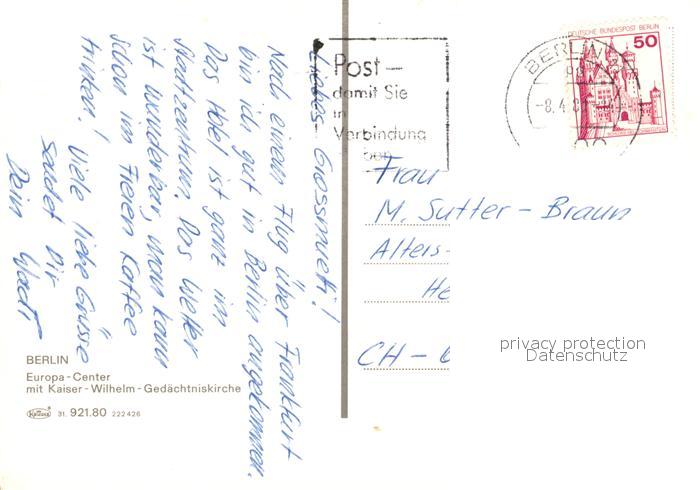 Liebes Grossmueti!
Nach einem Flug über Frankfurt
bin ich gut in Berlin angekommen.
Das Hotel ist ganz im
Stadtzentrum. Das Wetter
ist wunderbar, man kann
schon im Freien Kaffee
trinken! Viele liebe Grüsse
sendet Dir
Dein
BERLIN
Europa-Center
mit Kaiser-Wilhelm-Gedächtniskirche
Krüger 31. 921.80 222426
Post-
damit Sie
in
Verbindung
BERLIN
-8.4.8
DEUTSCHE BUNDESPOST BERLIN
50
Frau
M. Sutter-Braun
Alters-
He
CH-6
privacy protection
Datenschutz